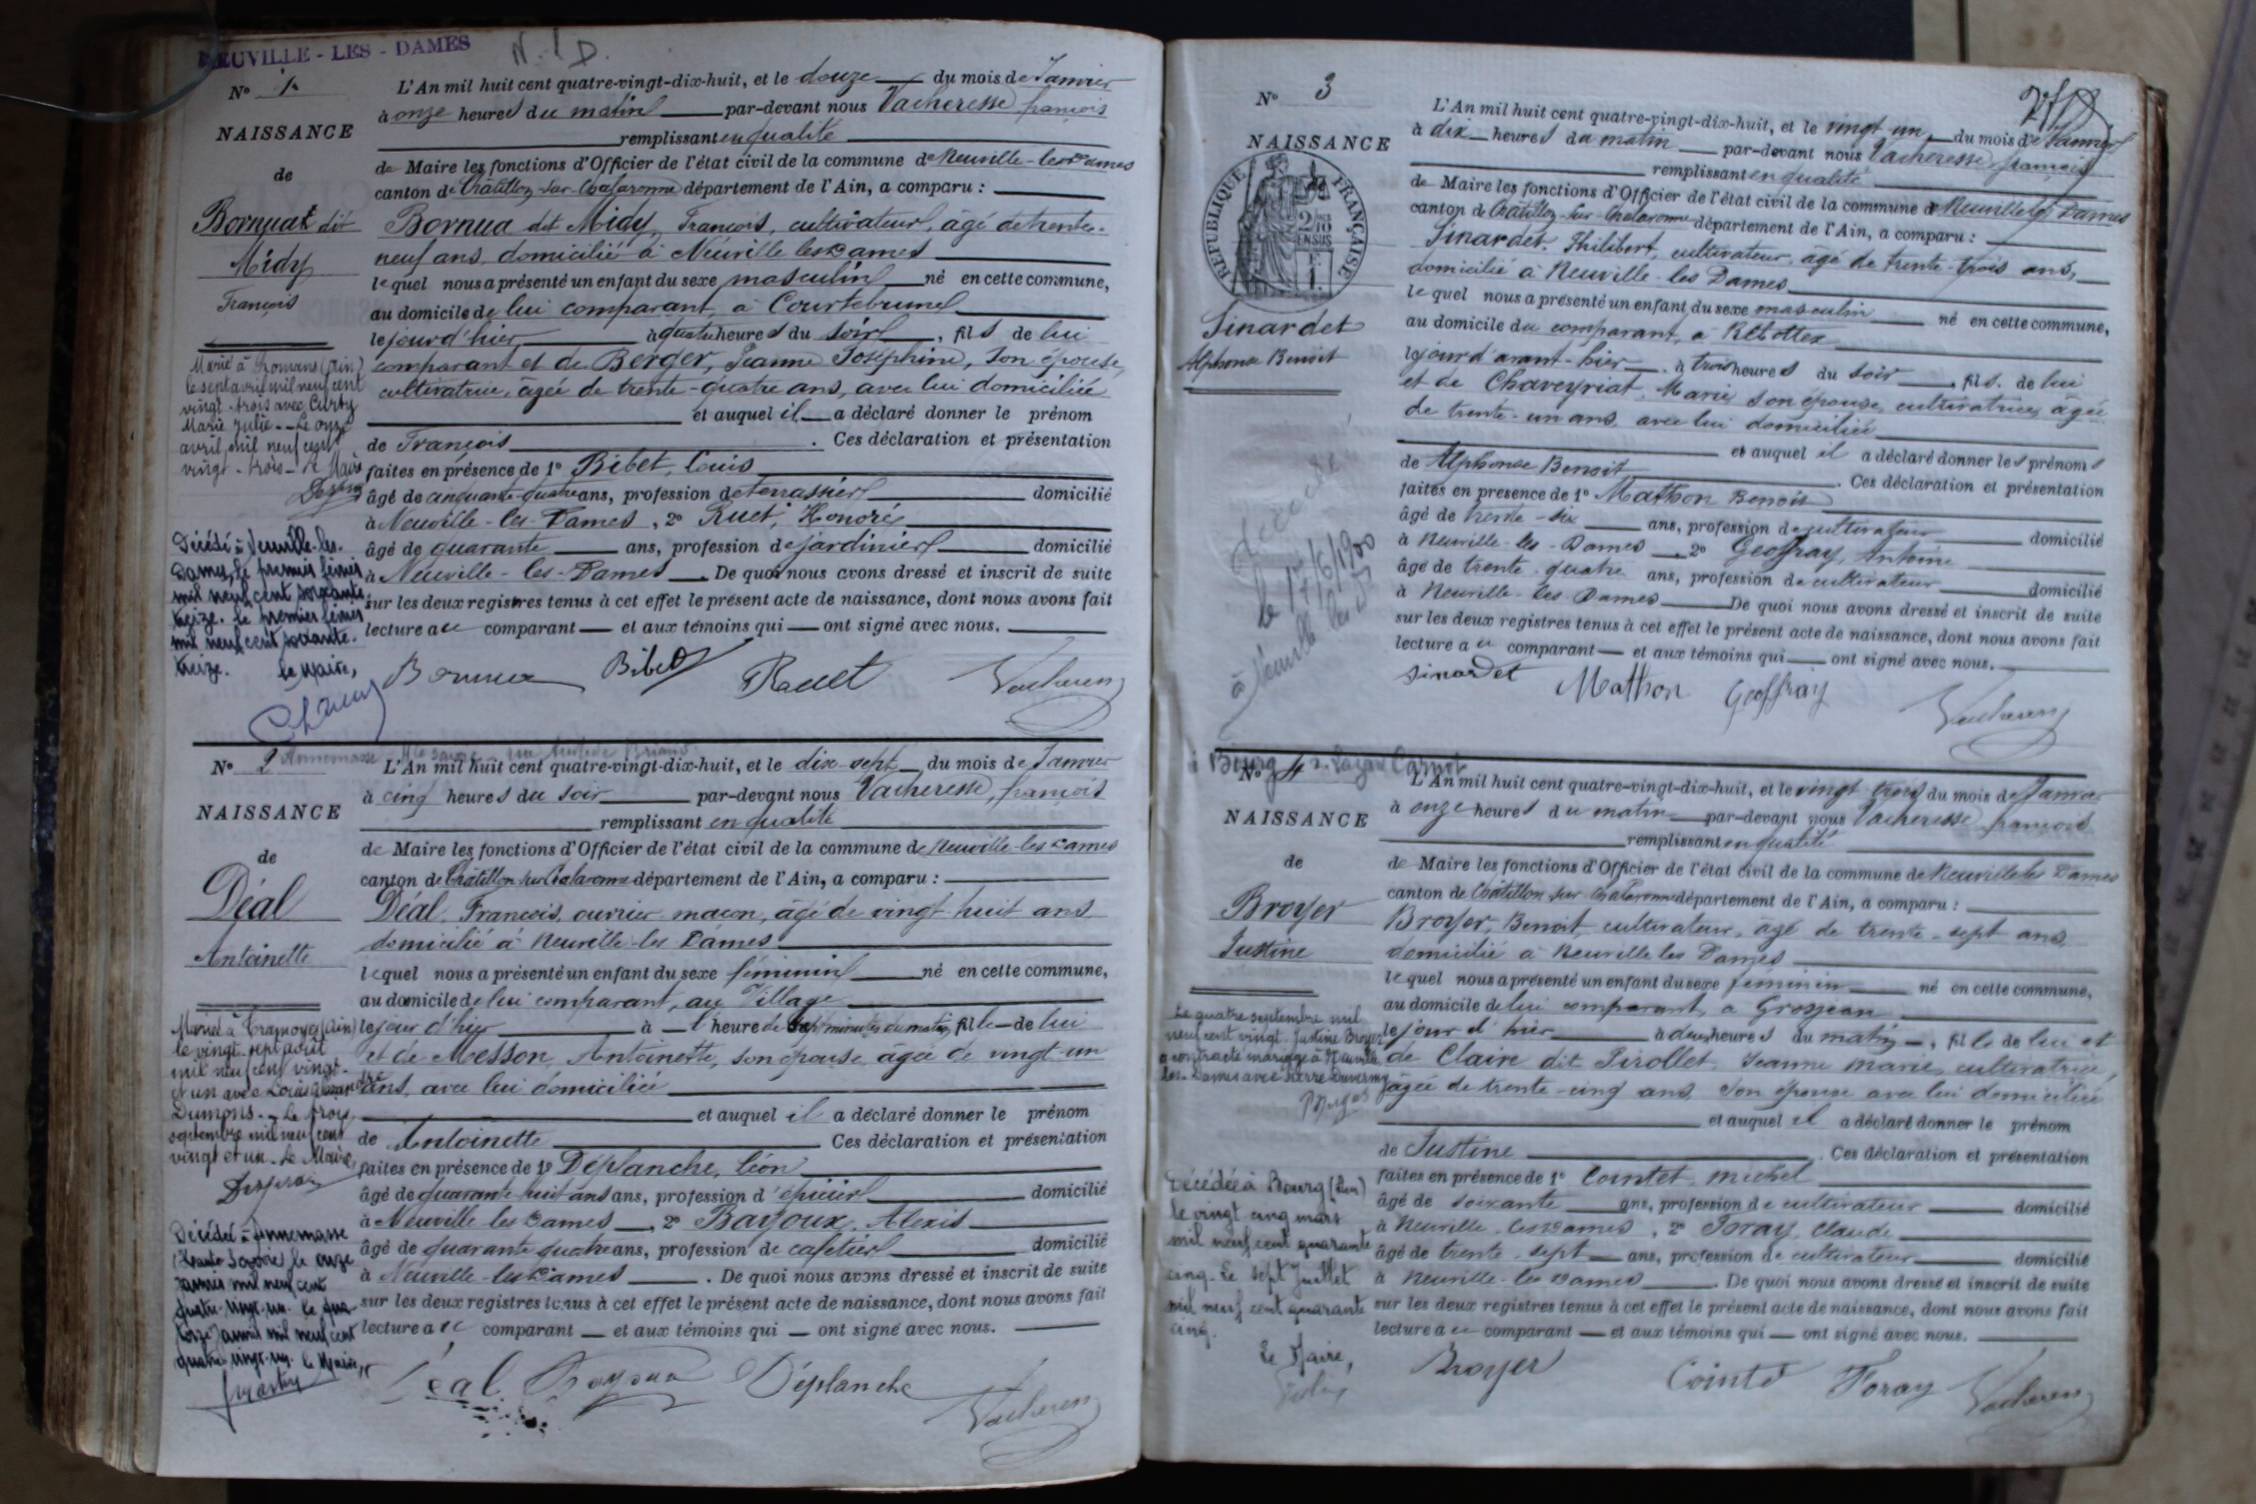 NEUVILLE - LES - DAMES
N. l D.
N° 1
NAISSANCE
de
Bornuat dit
Midy
François
Marié à Romans (Ain)
le sept avril mil neuf cent
vingt-trois avec Curty
Marie Julie. - Le onze
avril mil neuf cent
vingt-trois - Le Maire
Décédé à Neuville-les-
Dames, le premier février
mil neuf cent soixante
treize. le premier février
mil neuf cent soixante-
treize. le Maire,
L'An mil huit cent quatre-vingt-dix-huit, et le douze du mois de Janvier
à onze heures du matin par-devant nous Vacheresse françois
remplissant en qualité
de Maire les fonctions d'Officier de l'état civil de la commune de Neuville-les-Dames
canton de Châtillon-sur-Chalaronne département de l'Ain, a comparu :
Bornua dit Midy, François, cultivateur, âgé de trente-
neuf ans, domicilié à Neuville les Dames
lequel nous a présenté un enfant du sexe masculin né en cette commune,
au domicile de lui comparant, à Courtebrunel
le jour d'hier à quatre heures du soir, fils de lui
comparant et de Berger, Jeanne Joséphine, son épouse,
cultivatrice, âgée de trente-quatre ans, avec lui domiciliée
et auquel il a déclaré donner le prénom
de François. Ces déclaration et présentation
faites en présence de 1° Bibet, Louis
âgé de cinquante-quatre ans, profession de terrassier domicilié
à Neuville-les-Dames, 2° Ruet, Honoré
âgé de quarante ans, profession de jardinier domicilié
à Neuville-les-Dames. De quoi nous avons dressé et inscrit de suite
sur les deux registres tenus à cet effet le présent acte de naissance, dont nous avons fait
lecture au comparant et aux témoins qui ont signé avec nous.
Bornua Bibet Ruet Vacheresse
N° 2
NAISSANCE
de
Déal
Antoinette
Mariée à Tramoyes (Ain)
le vingt-sept août
mil neuf cent vingt-
et un avec Louis
Dumons. - Le trois
septembre mil neuf cent
vingt et un. Le Maire,
Décédée à Annemasse
(Haute Savoie) le onze
janvier mil neuf cent
quatre-vingt-un. le qua-
torze janvier mil neuf cent
quatre vingt-un. le Maire,
L'An mil huit cent quatre-vingt-dix-huit, et le dix-sept du mois de Janvier
à cinq heures du soir par-devant nous Vacheresse, françois
remplissant en qualité
de Maire les fonctions d'Officier de l'état civil de la commune de Neuville-les-Dames
canton de Châtillon sur Chalaronne département de l'Ain, a comparu :
Déal, François, ouvrier maçon, âgé de vingt-huit ans
domicilié à Neuville-les Dames
lequel nous a présenté un enfant du sexe féminin né en cette commune,
au domicile de lui comparant, au Village
le jour d'hier à l'heure de sept minutes du matin, fille de lui
et de Messon, Antoinette, son épouse âgée de vingt-un
ans, avec lui domiciliée
et auquel il a déclaré donner le prénom
de Antoinette Ces déclaration et présentation
faites en présence de 1° Déplanche, Léon
âgé de quarante huit ans ans, profession d'épicier domicilié
à Neuville les Dames, 2° Bayoux, Alexis
âgé de quarante quatre ans, profession de cafetier domicilié
à Neuville-les Dames. De quoi nous avons dressé et inscrit de suite
sur les deux registres tenus à cet effet le présent acte de naissance, dont nous avons fait
lecture au comparant et aux témoins qui ont signé avec nous.
Déal Bayoux Déplanche Vacheresse
N° 3
NAISSANCE
RÉPUBLIQUE FRANÇAISE
Sinardet
Alphonse Benoit
Décédé
le 17/6/1900
à Neuville les D
L'An mil huit cent quatre-vingt-dix-huit, et le vingt-un du mois de Janvier
à dix heures du matin par-devant nous Vacheresse françois
remplissant en qualité
de Maire les fonctions d'Officier de l'état civil de la commune de Neuville les Dames
canton de Châtillon-sur-Chalaronne département de l'Ain, a comparu :
Sinardet, Philibert, cultivateur, âgé de trente-trois ans,
domicilié à Neuville-les Dames
lequel nous a présenté un enfant du sexe masculin né en cette commune,
au domicile du comparant, à Rebottex
le jour d'avant-hier à trois heures du soir, fils de lui
et de Chaveyriat, Marie son épouse, cultivatrice, âgée
de trente-un ans, avec lui domiciliée
et auquel il a déclaré donner les prénoms
de Alphonse Benoit. Ces déclaration et présentation
faites en présence de 1° Mathon Benoit
âgé de trente-six ans, profession de cultivateur domicilié
à Neuville-les-Dames, 2° Geoffray, Antoine
âgé de trente-quatre ans, profession de cultivateur domicilié
à Neuville-les-Dames De quoi nous avons dressé et inscrit de suite
sur les deux registres tenus à cet effet le présent acte de naissance, dont nous avons fait
lecture au comparant et aux témoins qui ont signé avec nous.
sinardet Mathon Geoffray Vacheresse
à Bourg r. Lazare Carnot
N° 4
NAISSANCE
de
Broyer
Justine
Le quatre septembre mil
neuf cent vingt, Justine Broyer
a contracté mariage à Neuville
les-Dames avec Pierre Duverny
Décédée à Bourg (Ain)
le vingt cinq mars
mil neuf cent quarante
cinq. Le sept Juillet
mil neuf cent quarante
cinq.
Le Maire,
L'An mil huit cent quatre-vingt-dix-huit, et le vingt-trois du mois de Janvier
à onze heures du matin par-devant nous Vacheresse françois
remplissant en qualité
de Maire les fonctions d'Officier de l'état civil de la commune de Neuville les Dames
canton de Châtillon sur Chalaronne département de l'Ain, a comparu :
Broyer, Benoit cultivateur, âgé de trente-sept ans
domicilié à Neuville les Dames
lequel nous a présenté un enfant du sexe féminin né en cette commune,
au domicile de lui comparant, à Grosjean
le jour d'hier à deux heures du matin, fille de lui et
de Claire dit Pirollet, Jeanne Marie, cultivatrice,
âgée de trente-cinq ans, son épouse avec lui domiciliée
et auquel il a déclaré donner le prénom
de Justine. Ces déclaration et présentation
faites en présence de 1° Cointet, michel
âgé de soixante ans, profession de cultivateur domicilié
à Neuville-les-Dames, 2° Foray, Claude
âgé de trente-sept ans, profession de cultivateur domicilié
à Neuville-les Dames. De quoi nous avons dressé et inscrit de suite
sur les deux registres tenus à cet effet le présent acte de naissance, dont nous avons fait
lecture au comparant et aux témoins qui ont signé avec nous.
Broyer Cointet Foray Vacheresse